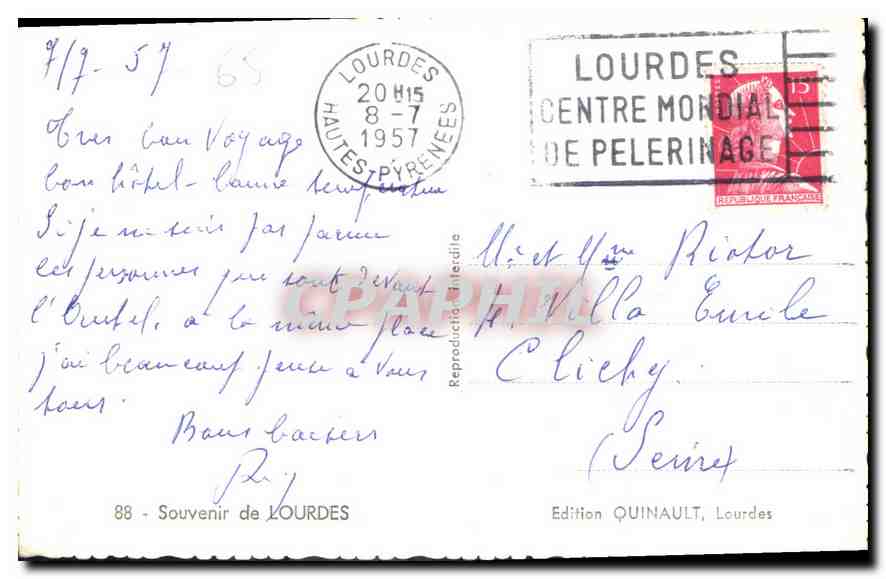 7/7-57
65
Tres bon Voyage
bon hôtel - bonne
Si je ne suis pas parmi
les personnes qui sont devant
l'Autel, a la même place
j'ai beaucoup pense a vous
tous.
Bons baisers
88 - Souvenir de LOURDES
LOURDES
20 H15
8 -7
1957
HAUTES-PYRENEES
LOURDES
CENTRE MONDIAL
DE PELERINAGE
15
REPUBLIQUE FRANÇAISE
Reproduction interdite
Mr et Mme Riotor
Villa Emile
Clichy
(Seine)
Edition QUINAULT, Lourdes
CPAPHIL